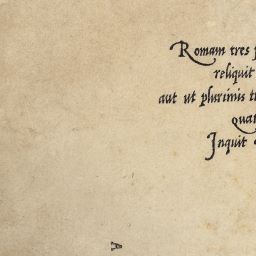 Romam tres
reliquit
aut ut plurimis
Inquit
A